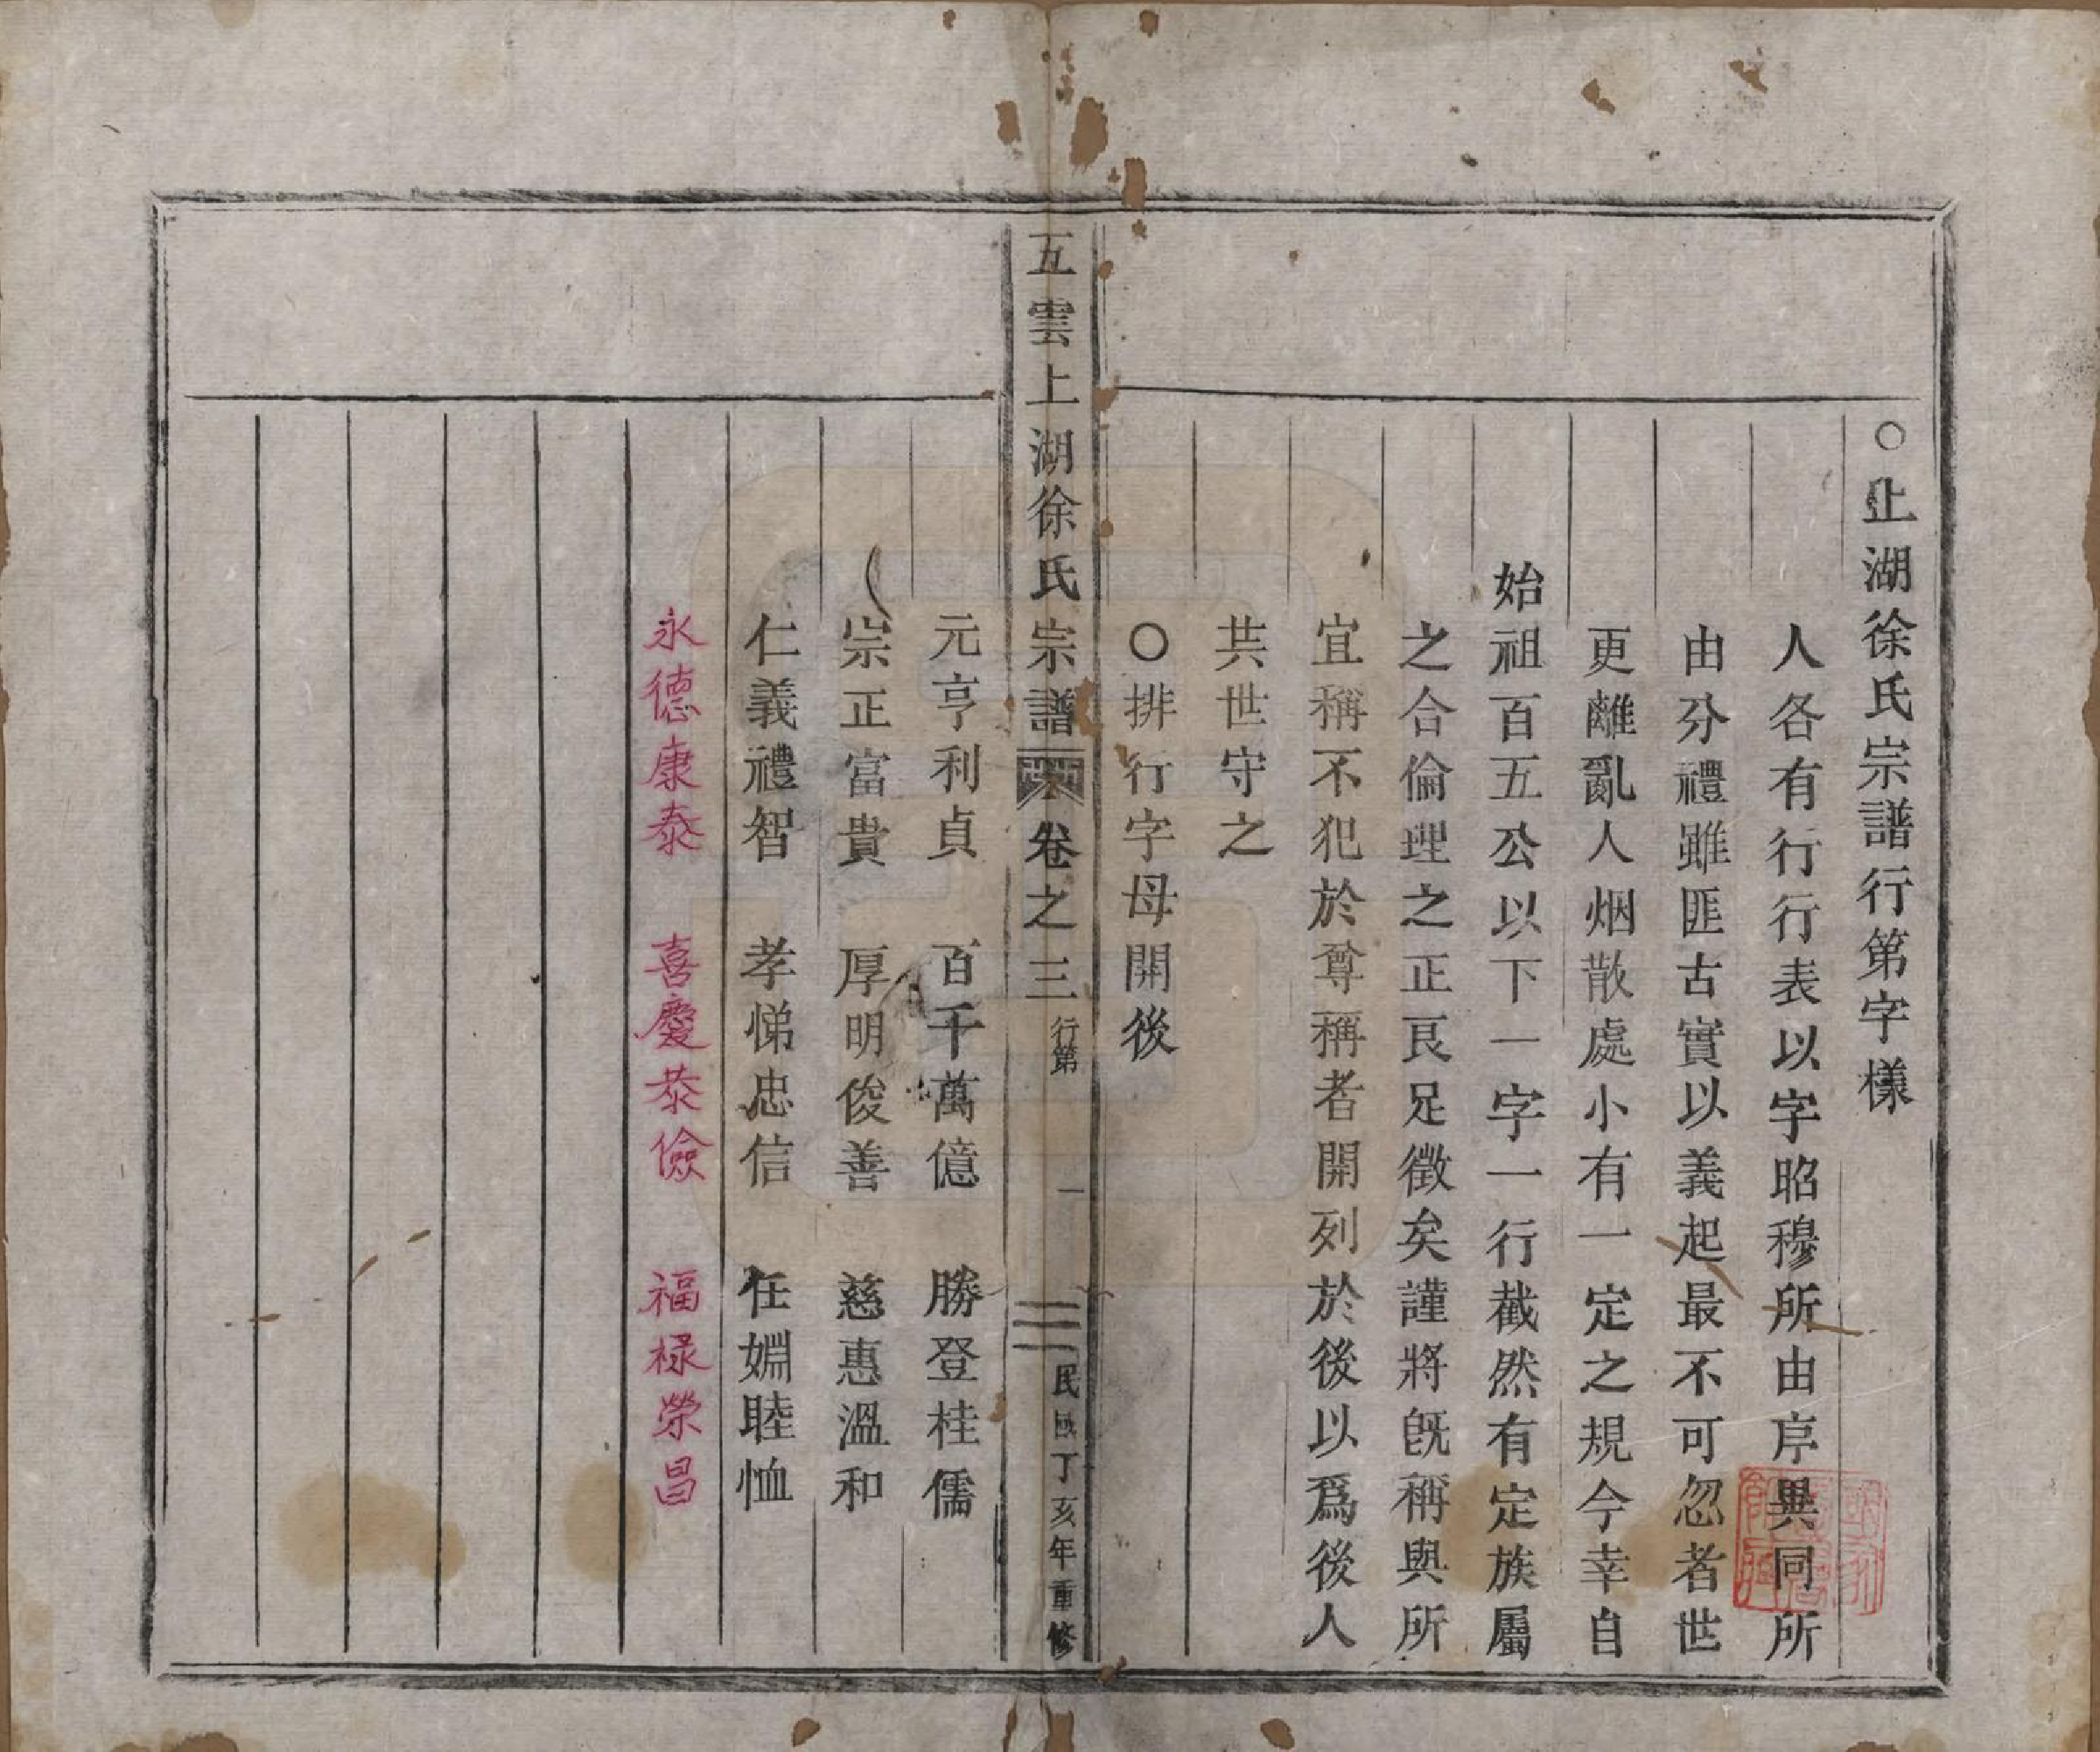 ○上湖徐氏宗譜行第字樣
人各有行行表以字昭穆所由序異同所
由分禮雖匪古實以義起最不可忽者世
更離亂人烟散處小有一定之規今幸自
始祖百五公以下一字一行截然有定族屬
之合倫理之正艮足徵矣謹將旣稱與所
宜稱不犯於尊稱者開列於後以爲後人
共世守之
○排行字母開後
五雲上湖徐氏宗譜 卷之三 行第 一 民國丁亥年重修
元亨利貞 百千萬億 勝登桂儒
崇正富貴 厚明俊善 慈惠溫和
仁義禮智 孝悌忠信 任婣睦恤
永德康泰 喜慶恭儉 福祿榮昌